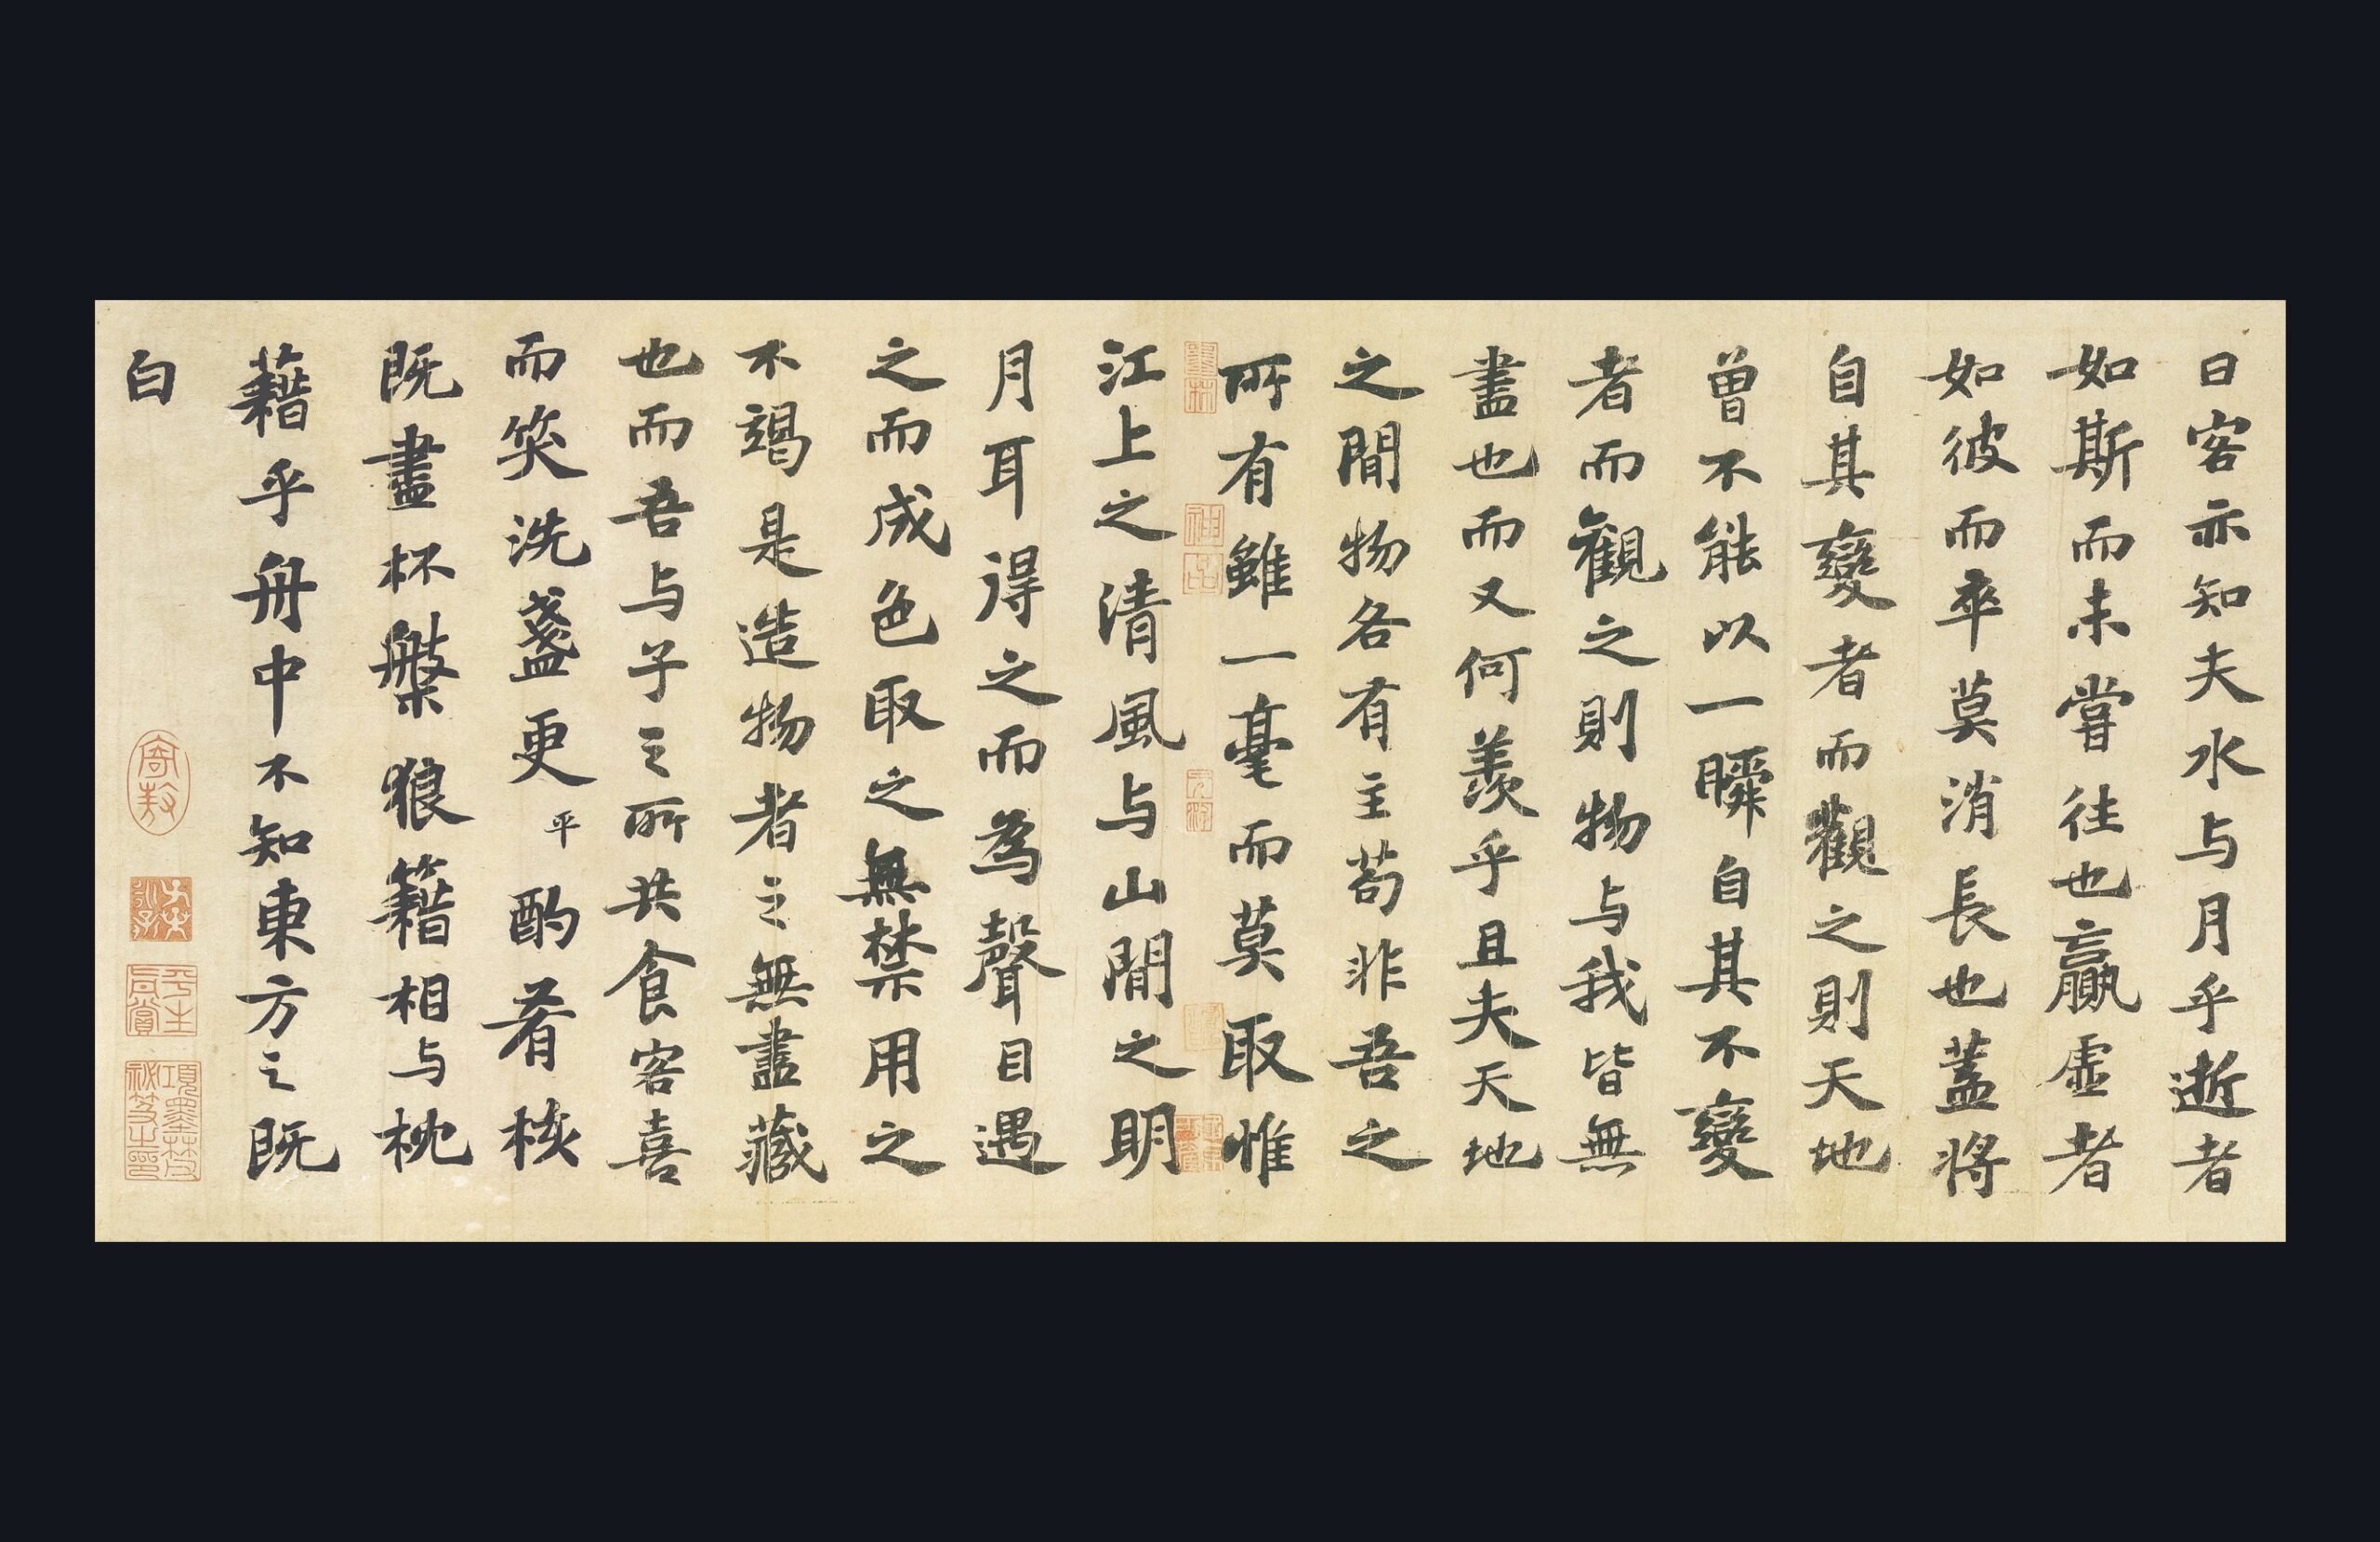 曰客亦知夫水与月乎逝者
如斯而未甞往也贏虛者
如彼而卒莫消長也蓋將
自其變者而觀之則天地
曾不能以一瞬自其不變
者而觀之則物与我皆無
盡也而又何羨乎且夫天地
之間物各有主苟非吾之
所有雖一毫而莫取惟
江上之清風与山間之明
月耳得之而為聲目遇
之而成色取之無禁用之
不竭是造物者之無盡藏
也而吾与子之所共食客喜
而笑洗盞更平酌肴核
既盡杯槃狼籍相与枕
藉乎舟中不知東方之既
白
項墨林父
祕笈之印